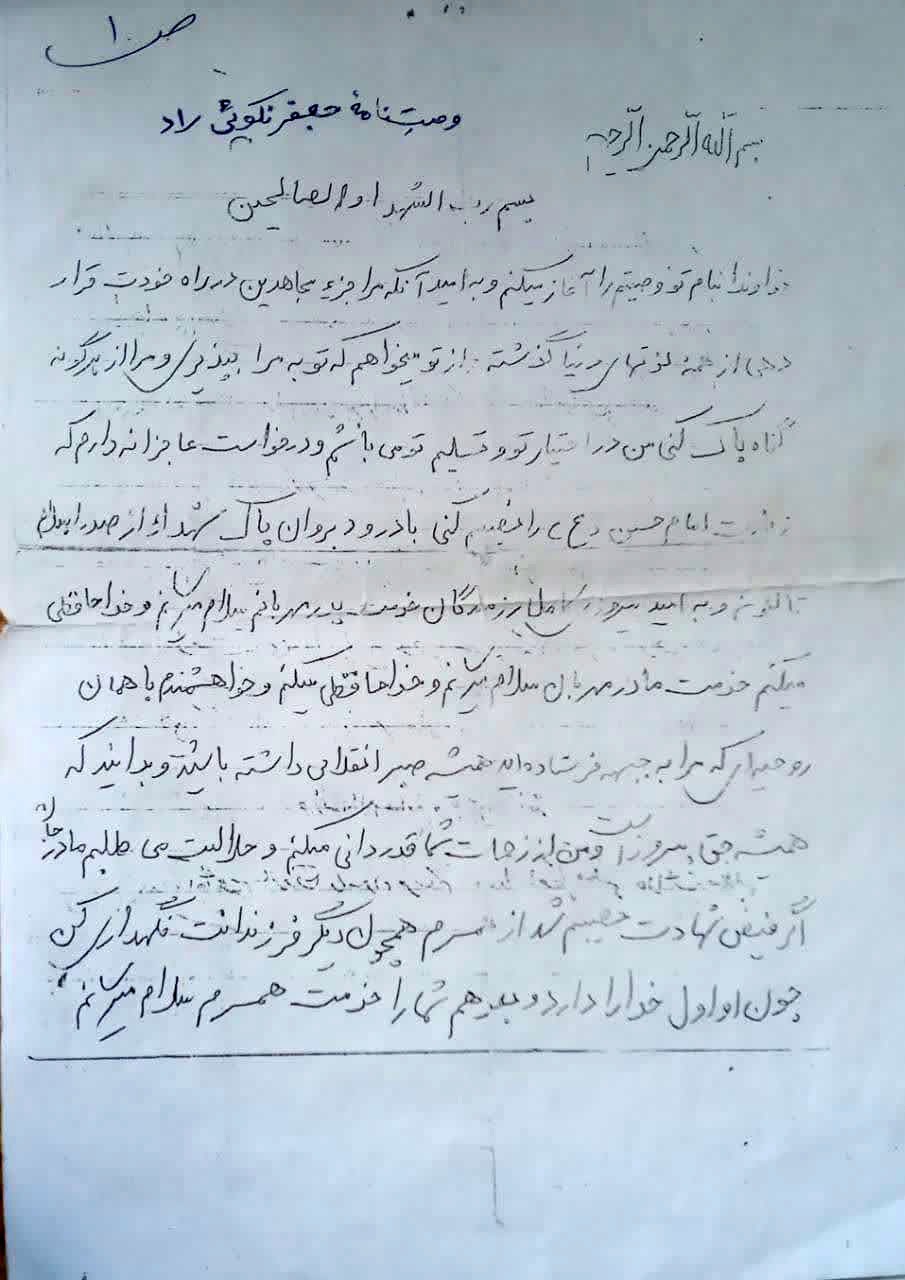 ص ۱
وصیت‌نامهٔ جعفر نکوئی راد
بسم الله الرحمن الرحیم
بسم رب الشهداء والصالحین
خداوندا بنام تو وصیتم را آغاز میکنم و به امید آنکه مرا جزء مجاهدین در راه خودت قرار
دهی از همهٔ لذتهای دنیا گذشته از تو میخواهم که توبه مرا بپذیری و مرا از هرگونه
گناه پاک کنی من در اختیار تو و تسلیم تو می باشم و درخواست عاجزانه دارم که
زیارت امام حسین (ع) را نصیبم کنی با درود بر روان پاک شهداء از صدر اسلام
تاکنون و به امید پیروزی کامل رزمندگان خدمت پدر مهربانم سلام میرسانم و خداحافظی
میکنم خدمت مادر مهربان سلام میرسانم و خداحافظی میکنم و خواهشمندم با همان
روحیه‌ای که مرا به جبهه فرستاده‌اید همیشه صبر انقلابی داشته باشید و بدانید که
همیشه حق پیروز است و من از زحمات شما قدردانی میکنم و حلالیت می طلبم مادر جان
اگر فیض شهادت نصیبم شد از همسرم همچون دیگر فرزندانت نگهداری کن
چون او اول خدا را دارد و بعد هم شما را خدمت همسرم سلام میرسانم